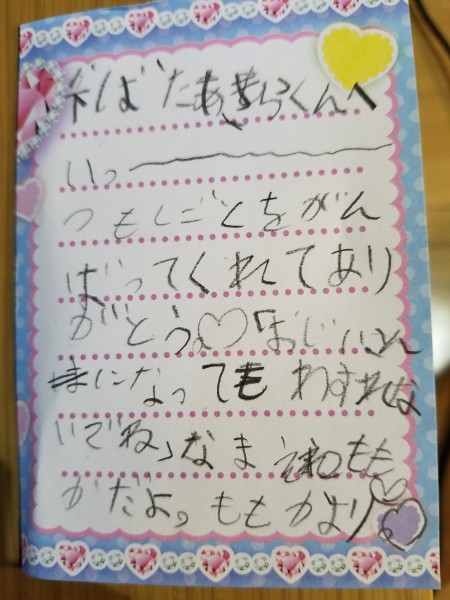 しばたあきらくんへ
いっ
つもしごとをがん
ばってくれてあり
がとう。♡「おじいさん
まになっても わすれな
いでね」なまえわもも
かだよっ ももかより。